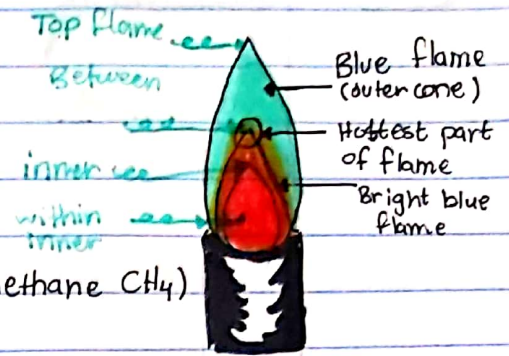 Top flame
Between
inner
within
inner
Blue flame
(outer cone)
Hottest part
of flame
Bright blue
flame
ethane CH4)